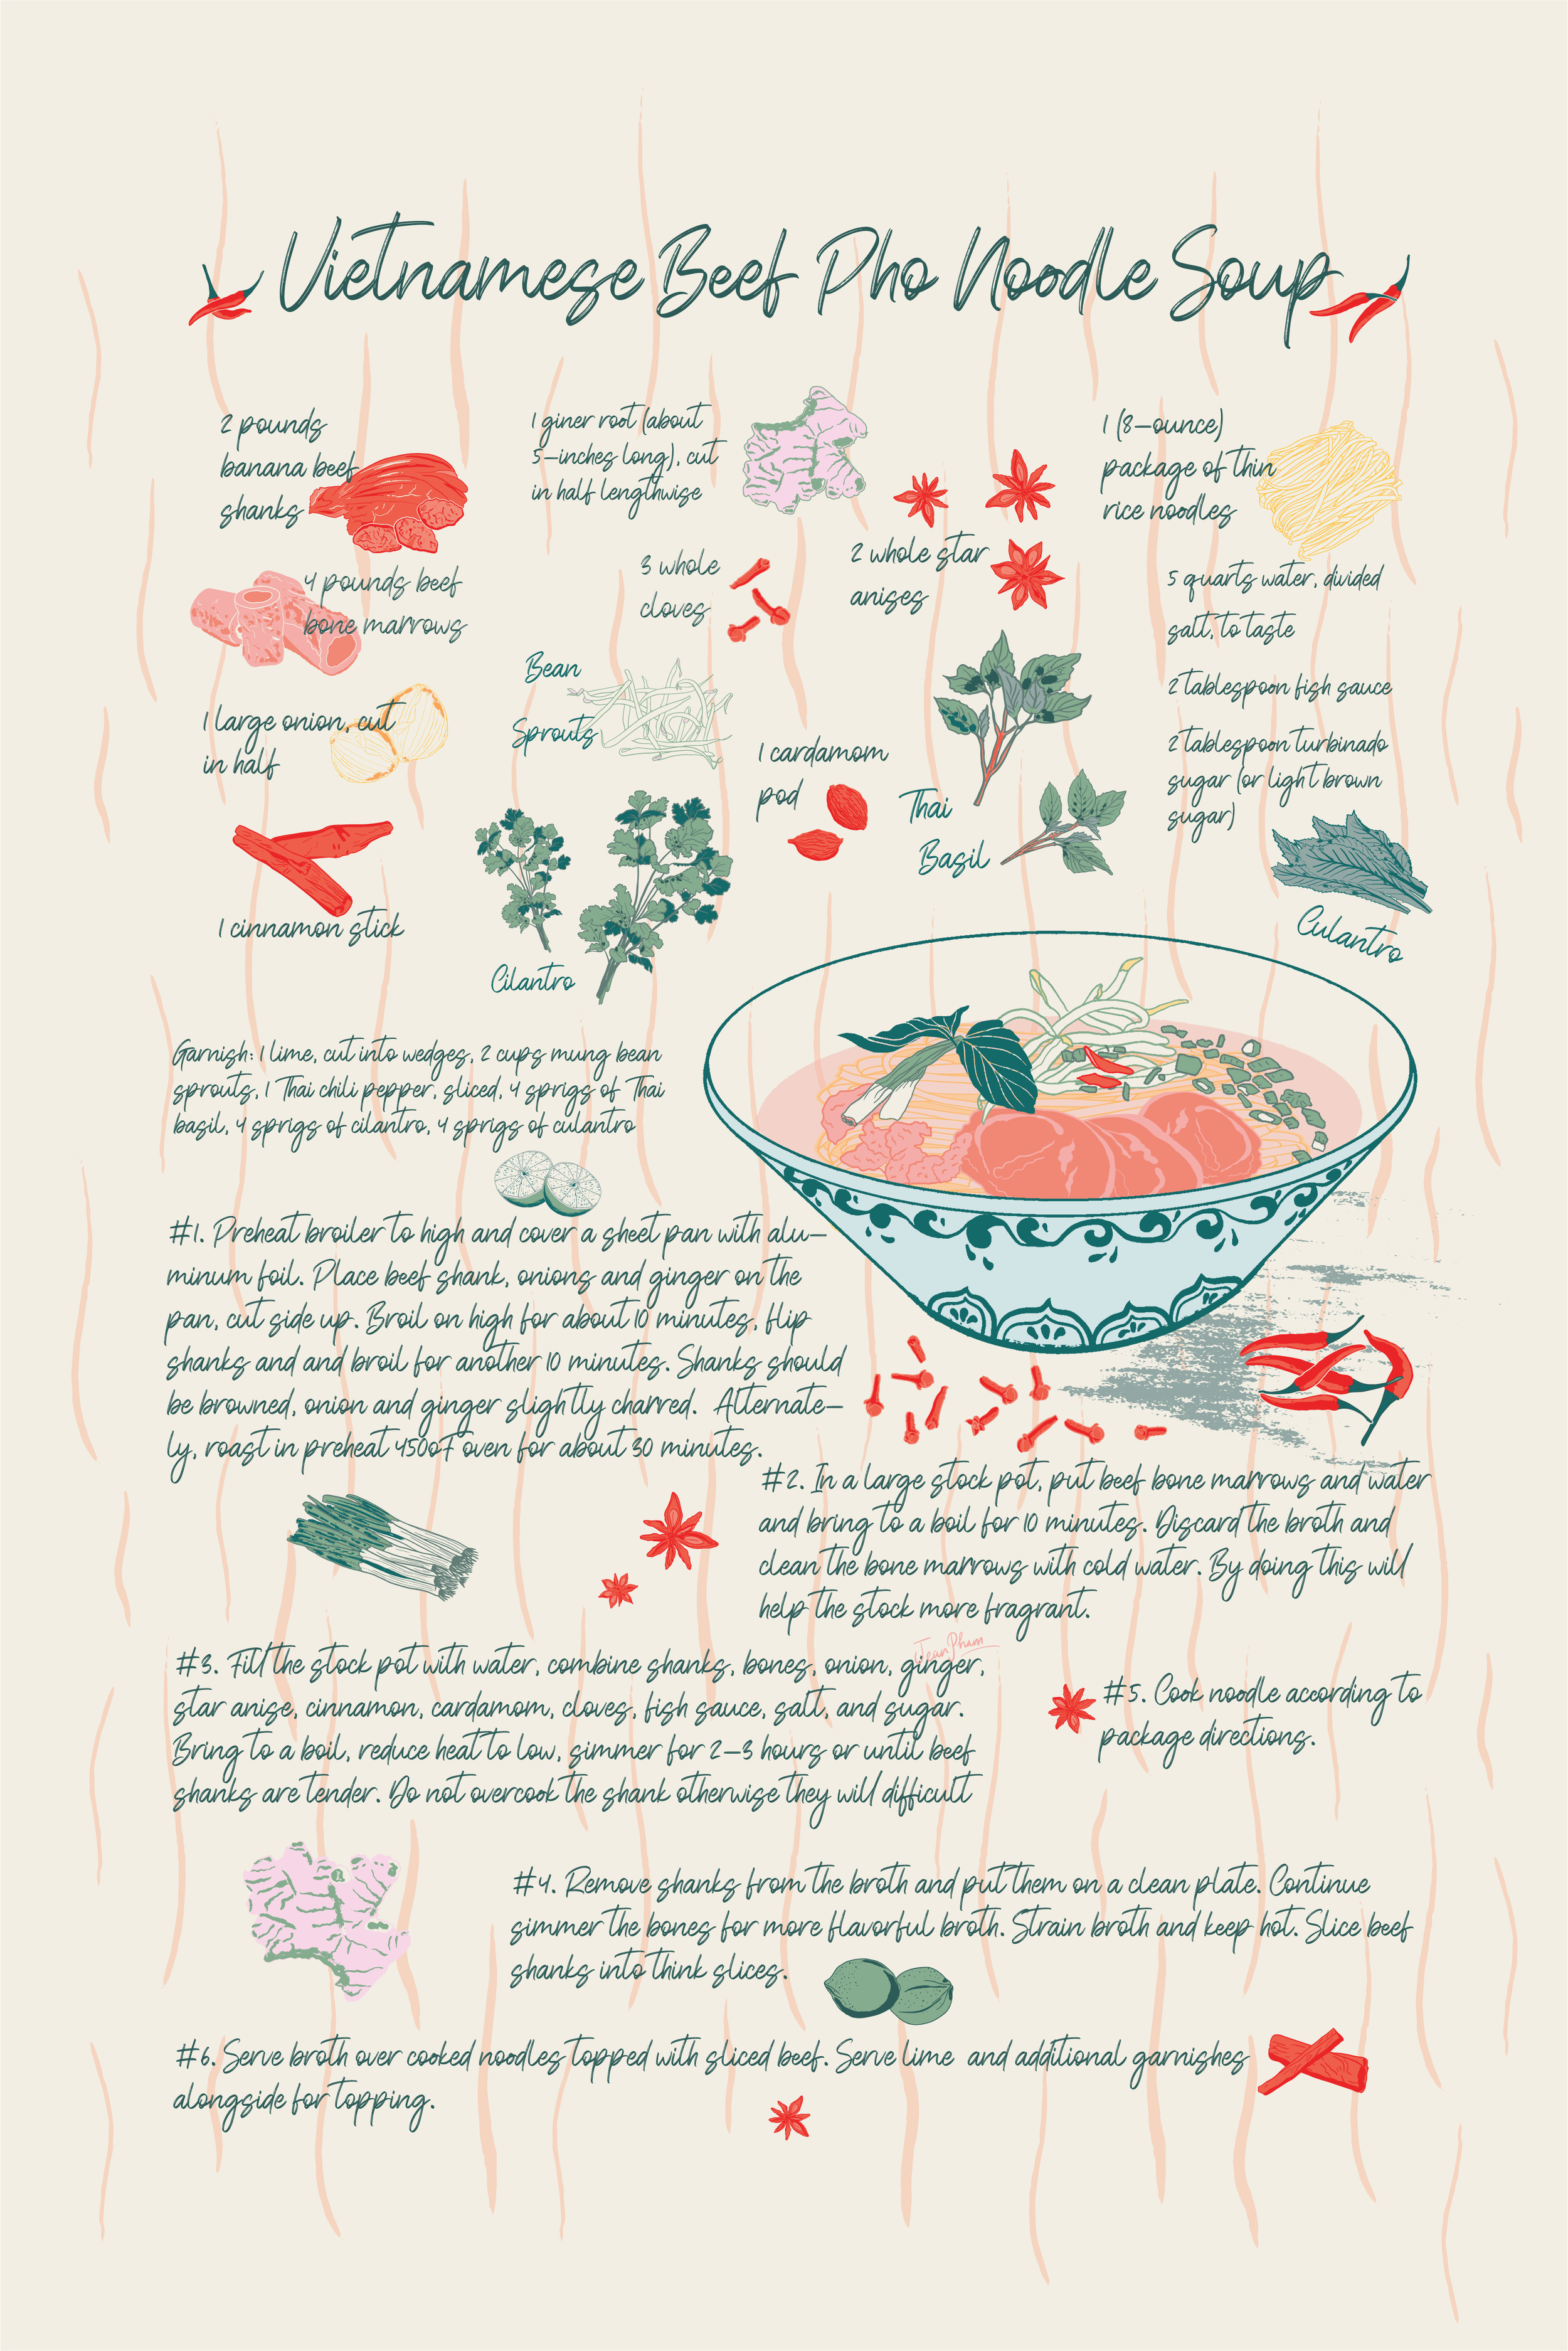 Vietnamese Beef Pho Noodle Soup
2 pounds
banana beef
shanks
1 giner root (about
5-inches long), cut
in half lengthwise
1 (8-ounce)
package of thin
rice noodles
4 pounds beef
bone marrows
3 whole
cloves
2 whole star
anises
5 quarts water, divided
salt, to taste
2 tablespoon fish sauce
2 tablespoon turbinado
sugar (or light brown
sugar)
1 large onion, cut
in half
Bean
Sprouts
1 cardamom
pod
Thai
Basil
1 cinnamon stick
Cilantro
Culantro
Garnish: 1 lime, cut into wedges, 2 cups mung bean
sprouts, 1 Thai chili pepper, sliced, 4 sprigs of Thai
basil, 4 sprigs of cilantro, 4 sprigs of culantro
#1. Preheat broiler to high and cover a sheet pan with alu-
minum foil. Place beef shank, onions and ginger on the
pan, cut side up. Broil on high for about 10 minutes, flip
shanks and and broil for another 10 minutes. Shanks should
be browned, onion and ginger slightly charred. Alternate-
ly, roast in preheat 450oF oven for about 30 minutes.
#2. In a large stock pot, put beef bone marrows and water
and bring to a boil for 10 minutes. Discard the broth and
clean the bone marrows with cold water. By doing this will
help the stock more fragrant.
Jean Pham
#3. Fill the stock pot with water, combine shanks, bones, onion, ginger,
star anise, cinnamon, cardamom, cloves, fish sauce, salt, and sugar.
Bring to a boil, reduce heat to low, simmer for 2-3 hours or until beef
shanks are tender. Do not overcook the shank otherwise they will difficult
#5. Cook noodle according to
package directions.
#4. Remove shanks from the broth and put them on a clean plate. Continue
simmer the bones for more flavorful broth. Strain broth and keep hot. Slice beef
shanks into think slices.
#6. Serve broth over cooked noodles topped with sliced beef. Serve lime and additional garnishes
alongside for topping.